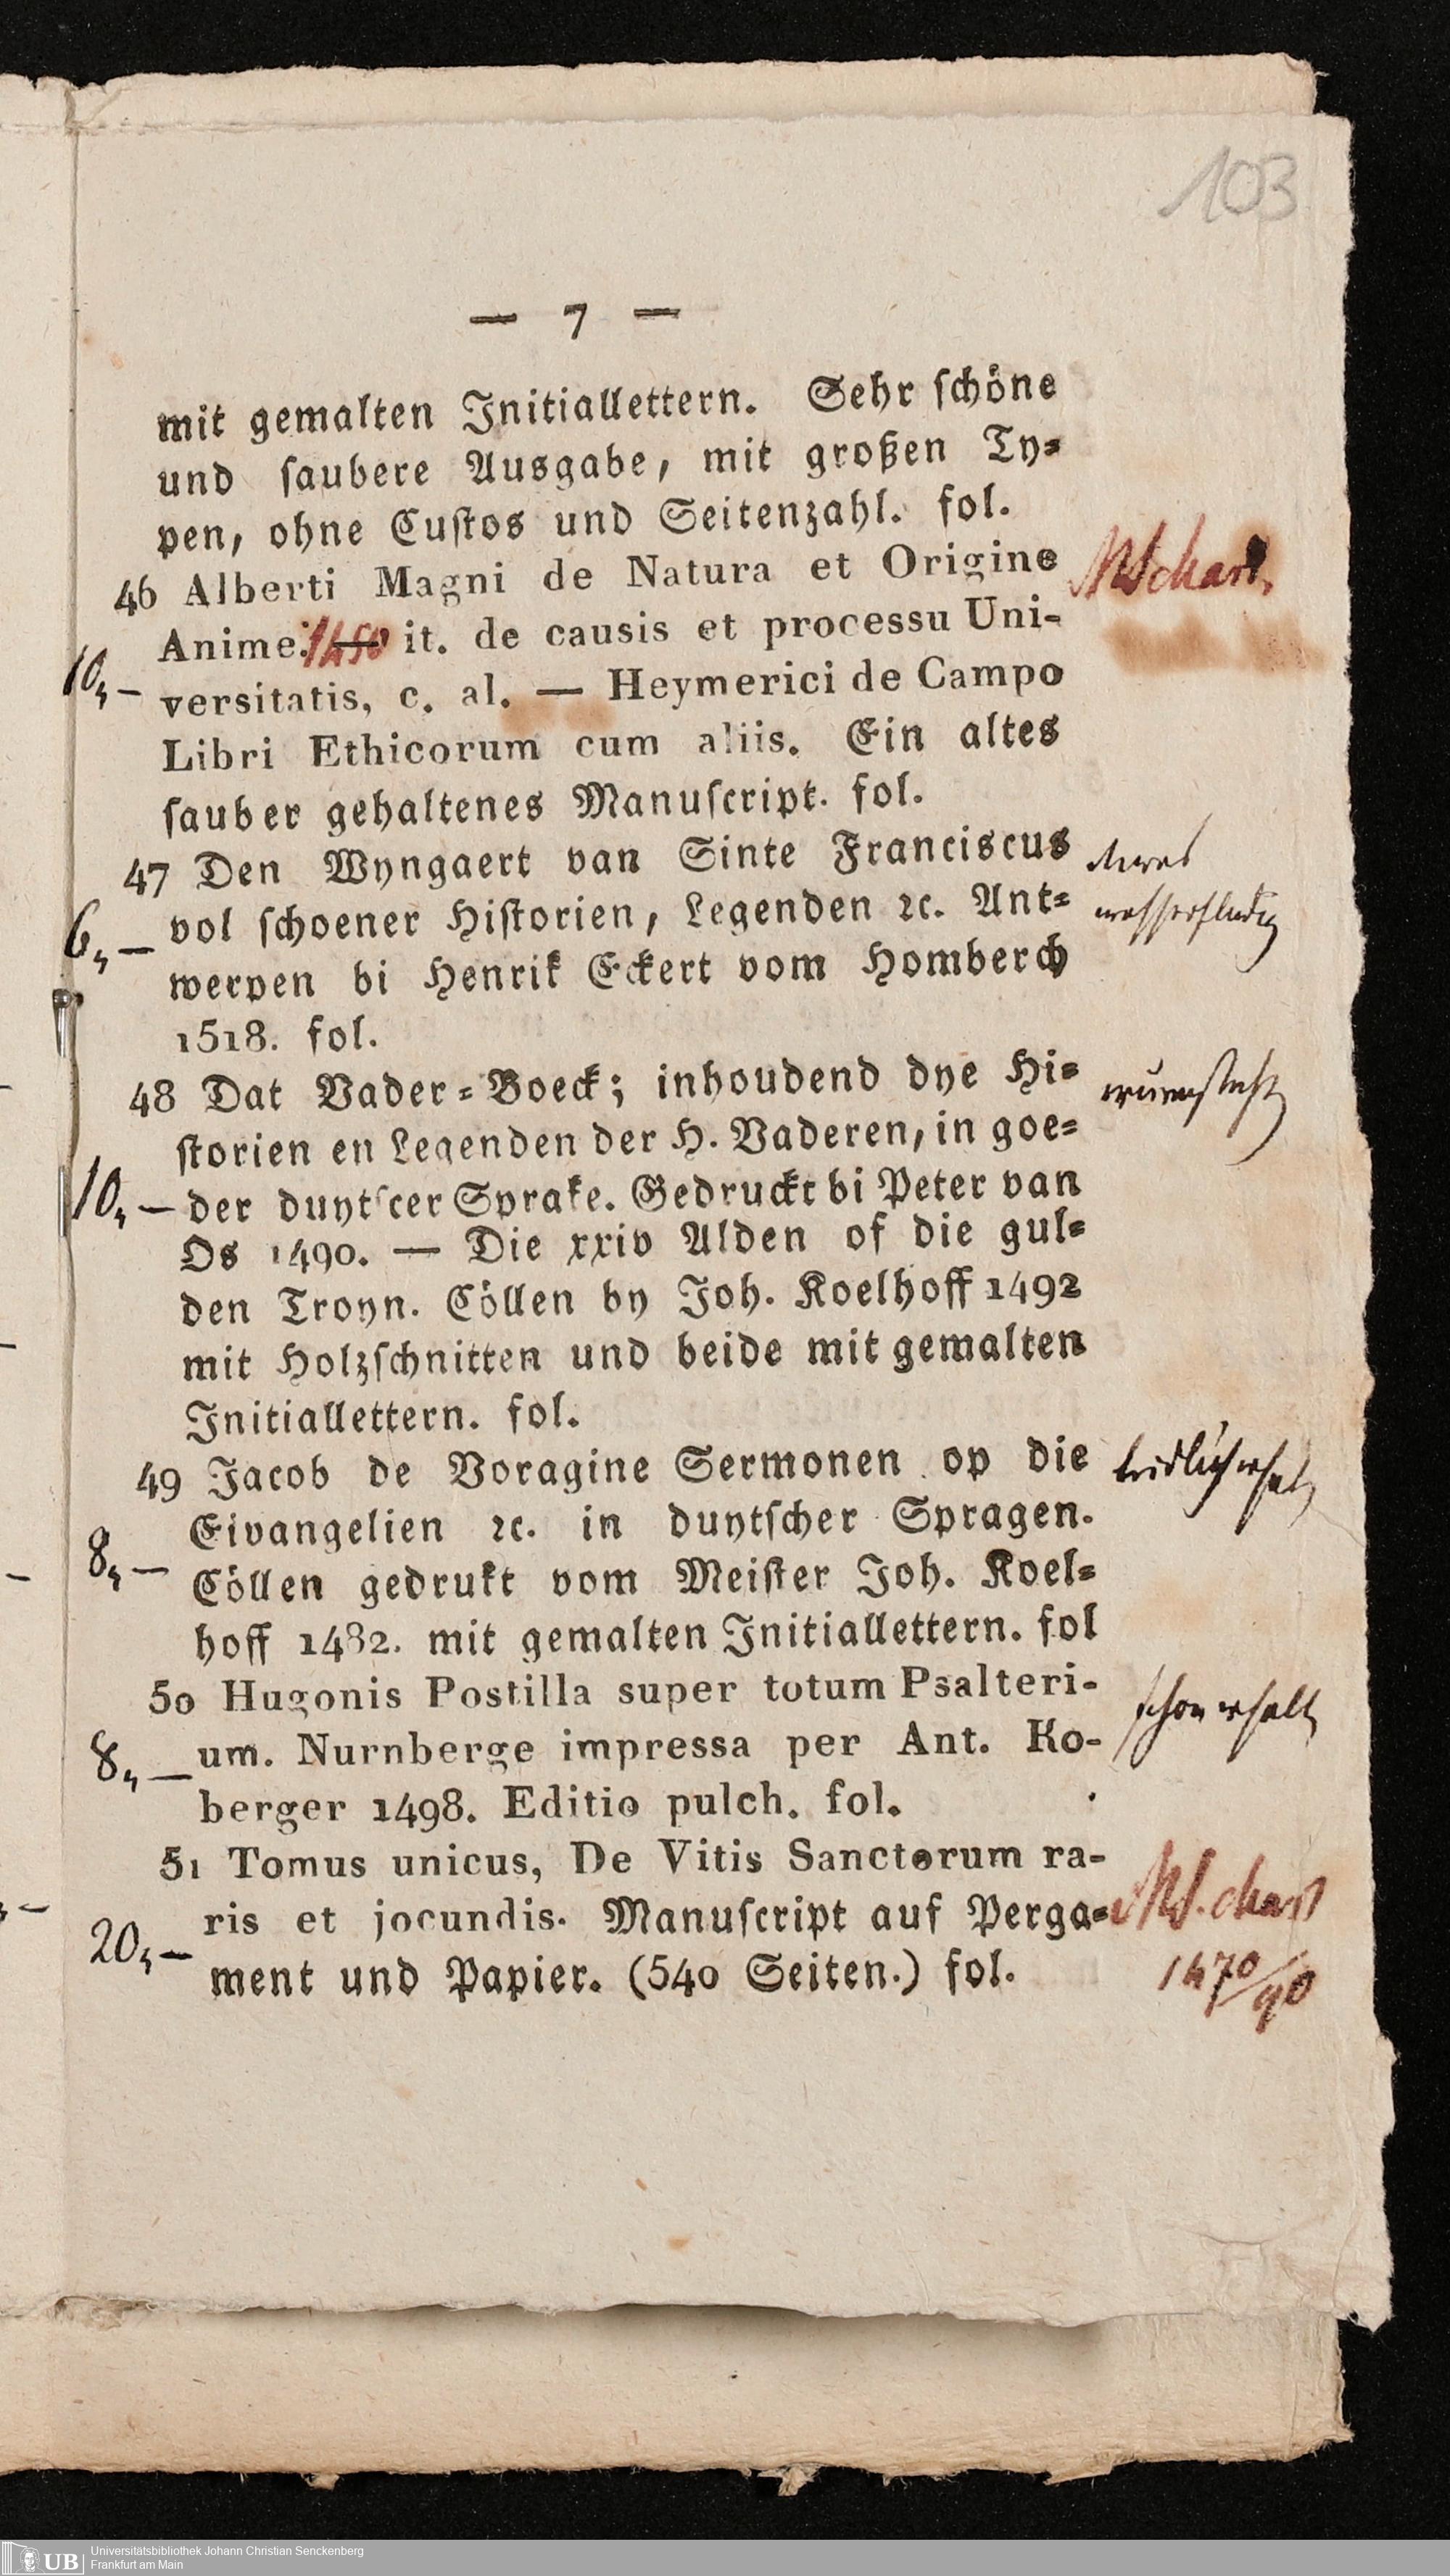 103
— 7 —
mit gemalten Initiallettern. Sehr ſchöne
und ſaubere Ausgabe, mit großen Ty⸗
pen, ohne Cuſtos und Seitenzahl. fol.
46 Alberti Magni de Natura et Origine
Anime. 1450 it. de causis et processu Uni-
10,— versitatis, c. al. — Heymerici de Campo
Libri Ethicorum cum aliis. Ein altes
ſauber gehaltenes Manuſcript. fol.
47 Den Wyngaert van Sinte Franciscus
6,— vol ſchoener Hiſtorien, Legenden ꝛc. Ant⸗
werpen bi Henrik Eckert vom Homberch
1518. fol.
48 Dat Vader⸗Boeck; inhoudend dye Hi⸗ wurmstich
ſtorien en Legenden der H. Vaderen, in goe⸗
10,— der duytſcer Sprake. Gedruckt bi Peter van
Os 1490. — Die xxiv Alden of die gul⸗
den Troyn. Cöllen by Joh. Koelhoff 1492
mit Holzſchnitten und beide mit gemalten
Initiallettern. fol.
49 Jacob de Voragine Sermonen op die
Eivangelien ꝛc. in duytſcher Spragen.
8,— Cöllen gedrukt vom Meiſter Joh. Koel⸗
hoff 1482. mit gemalten Initiallettern. fol
50 Hugonis Postilla super totum Psalteri- schon erhalt
8,— um. Nurnberge impressa per Ant. Ko-
berger 1498. Editio pulch. fol.
51 Tomus unicus, De Vitis Sanctorum ra-
ris et jocundis. Manuſcript auf Perga⸗ MS. chart
20,— ment und Papier. (540 Seiten.) fol. 1470/90
UB Universitätsbibliothek Johann Christian Senckenberg
Frankfurt am Main